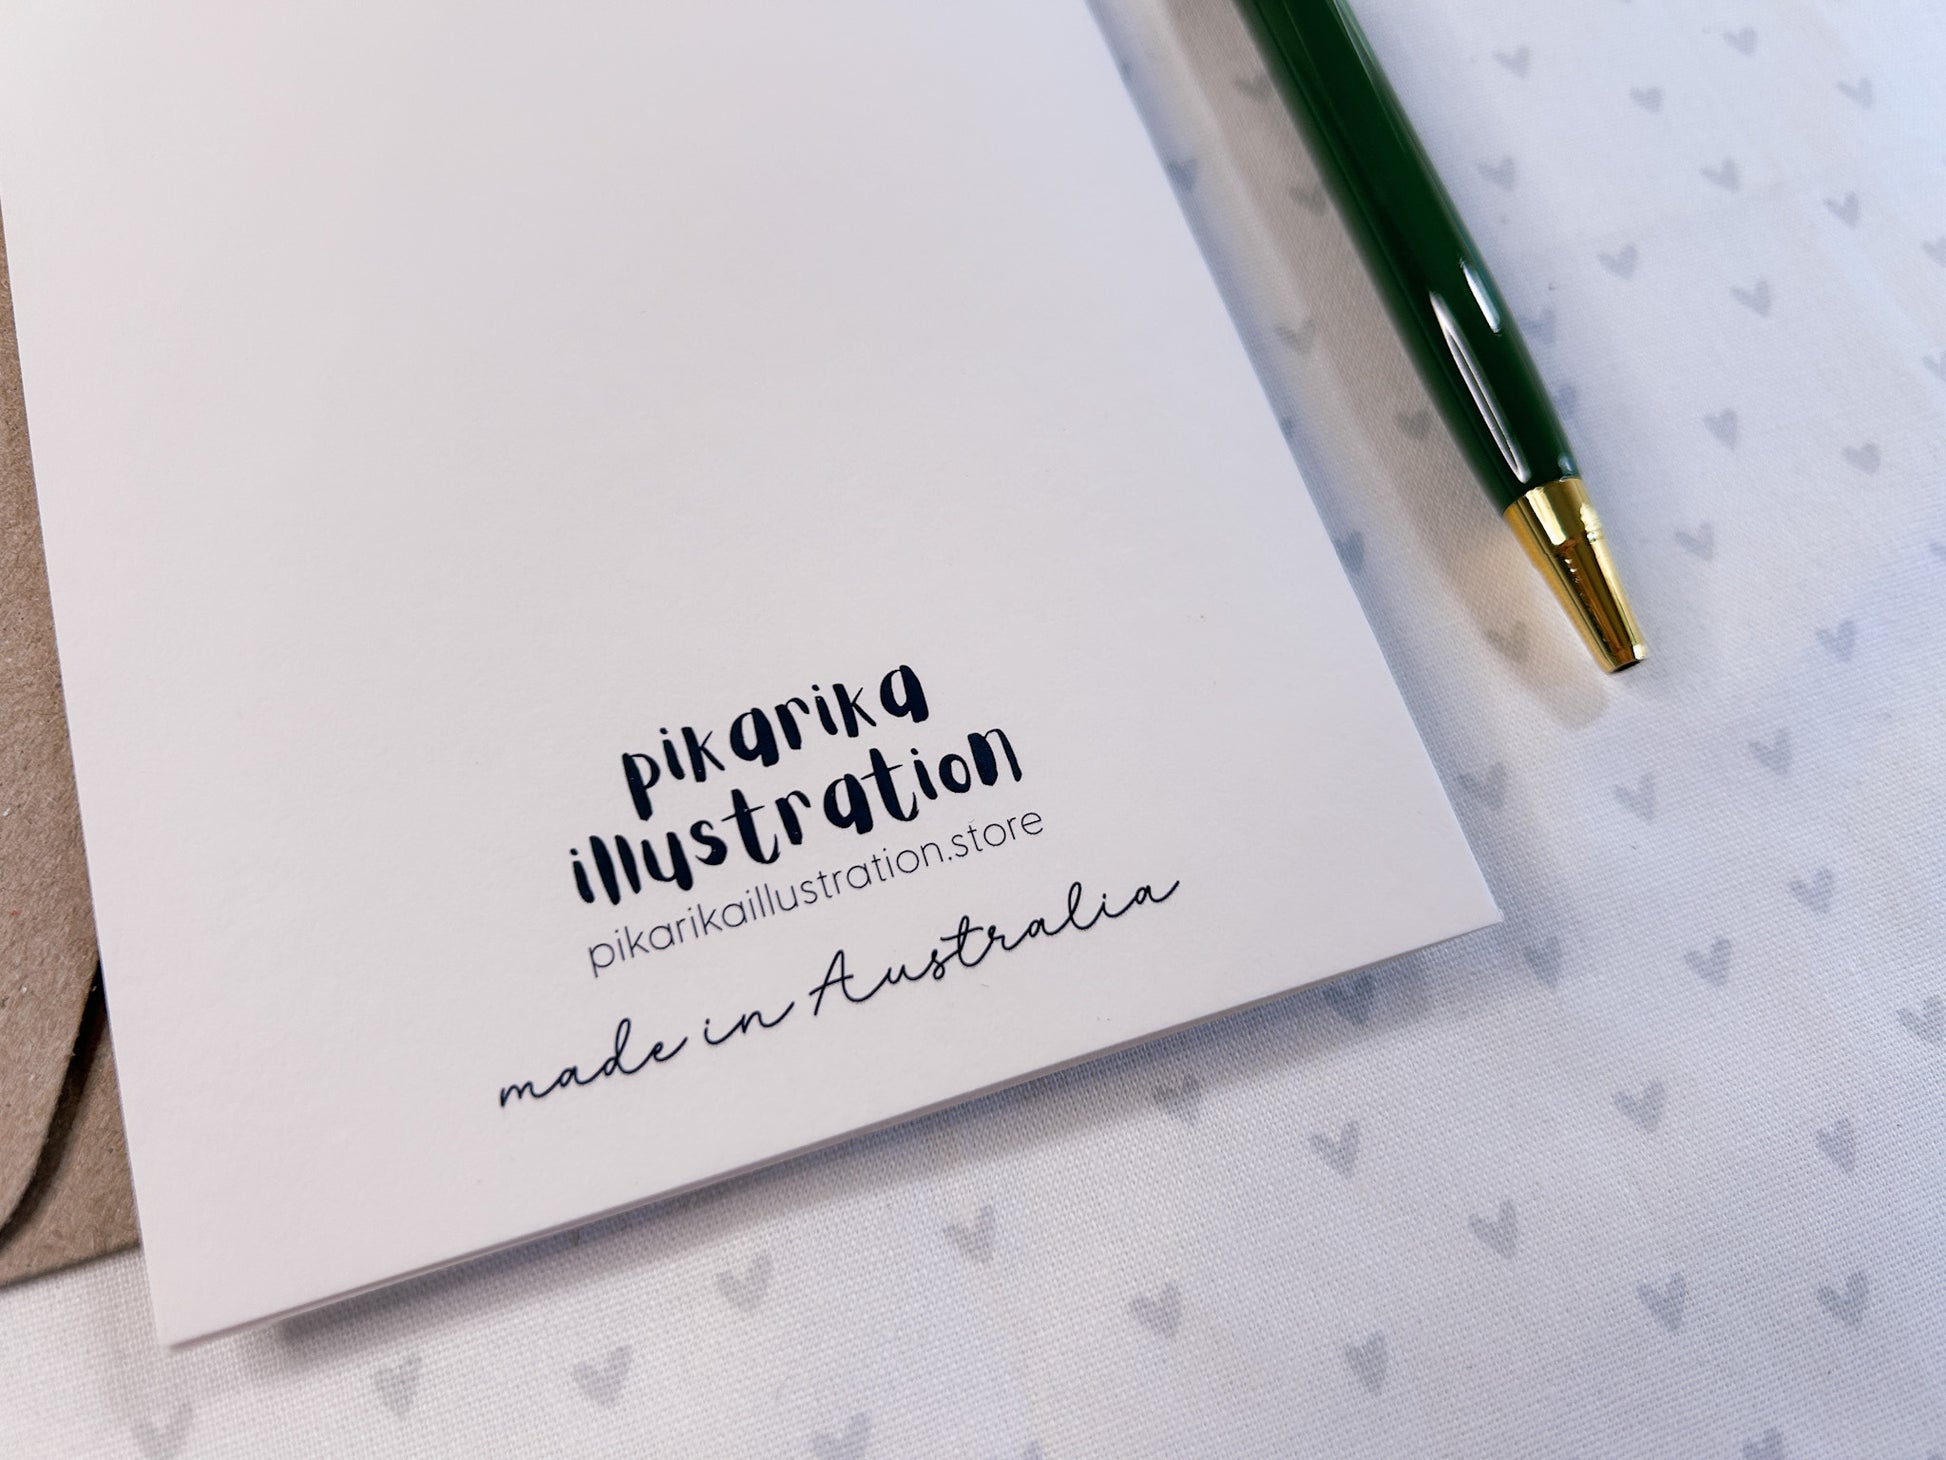 pikarika
illustration
pikarikaillustration.store
made in Australia